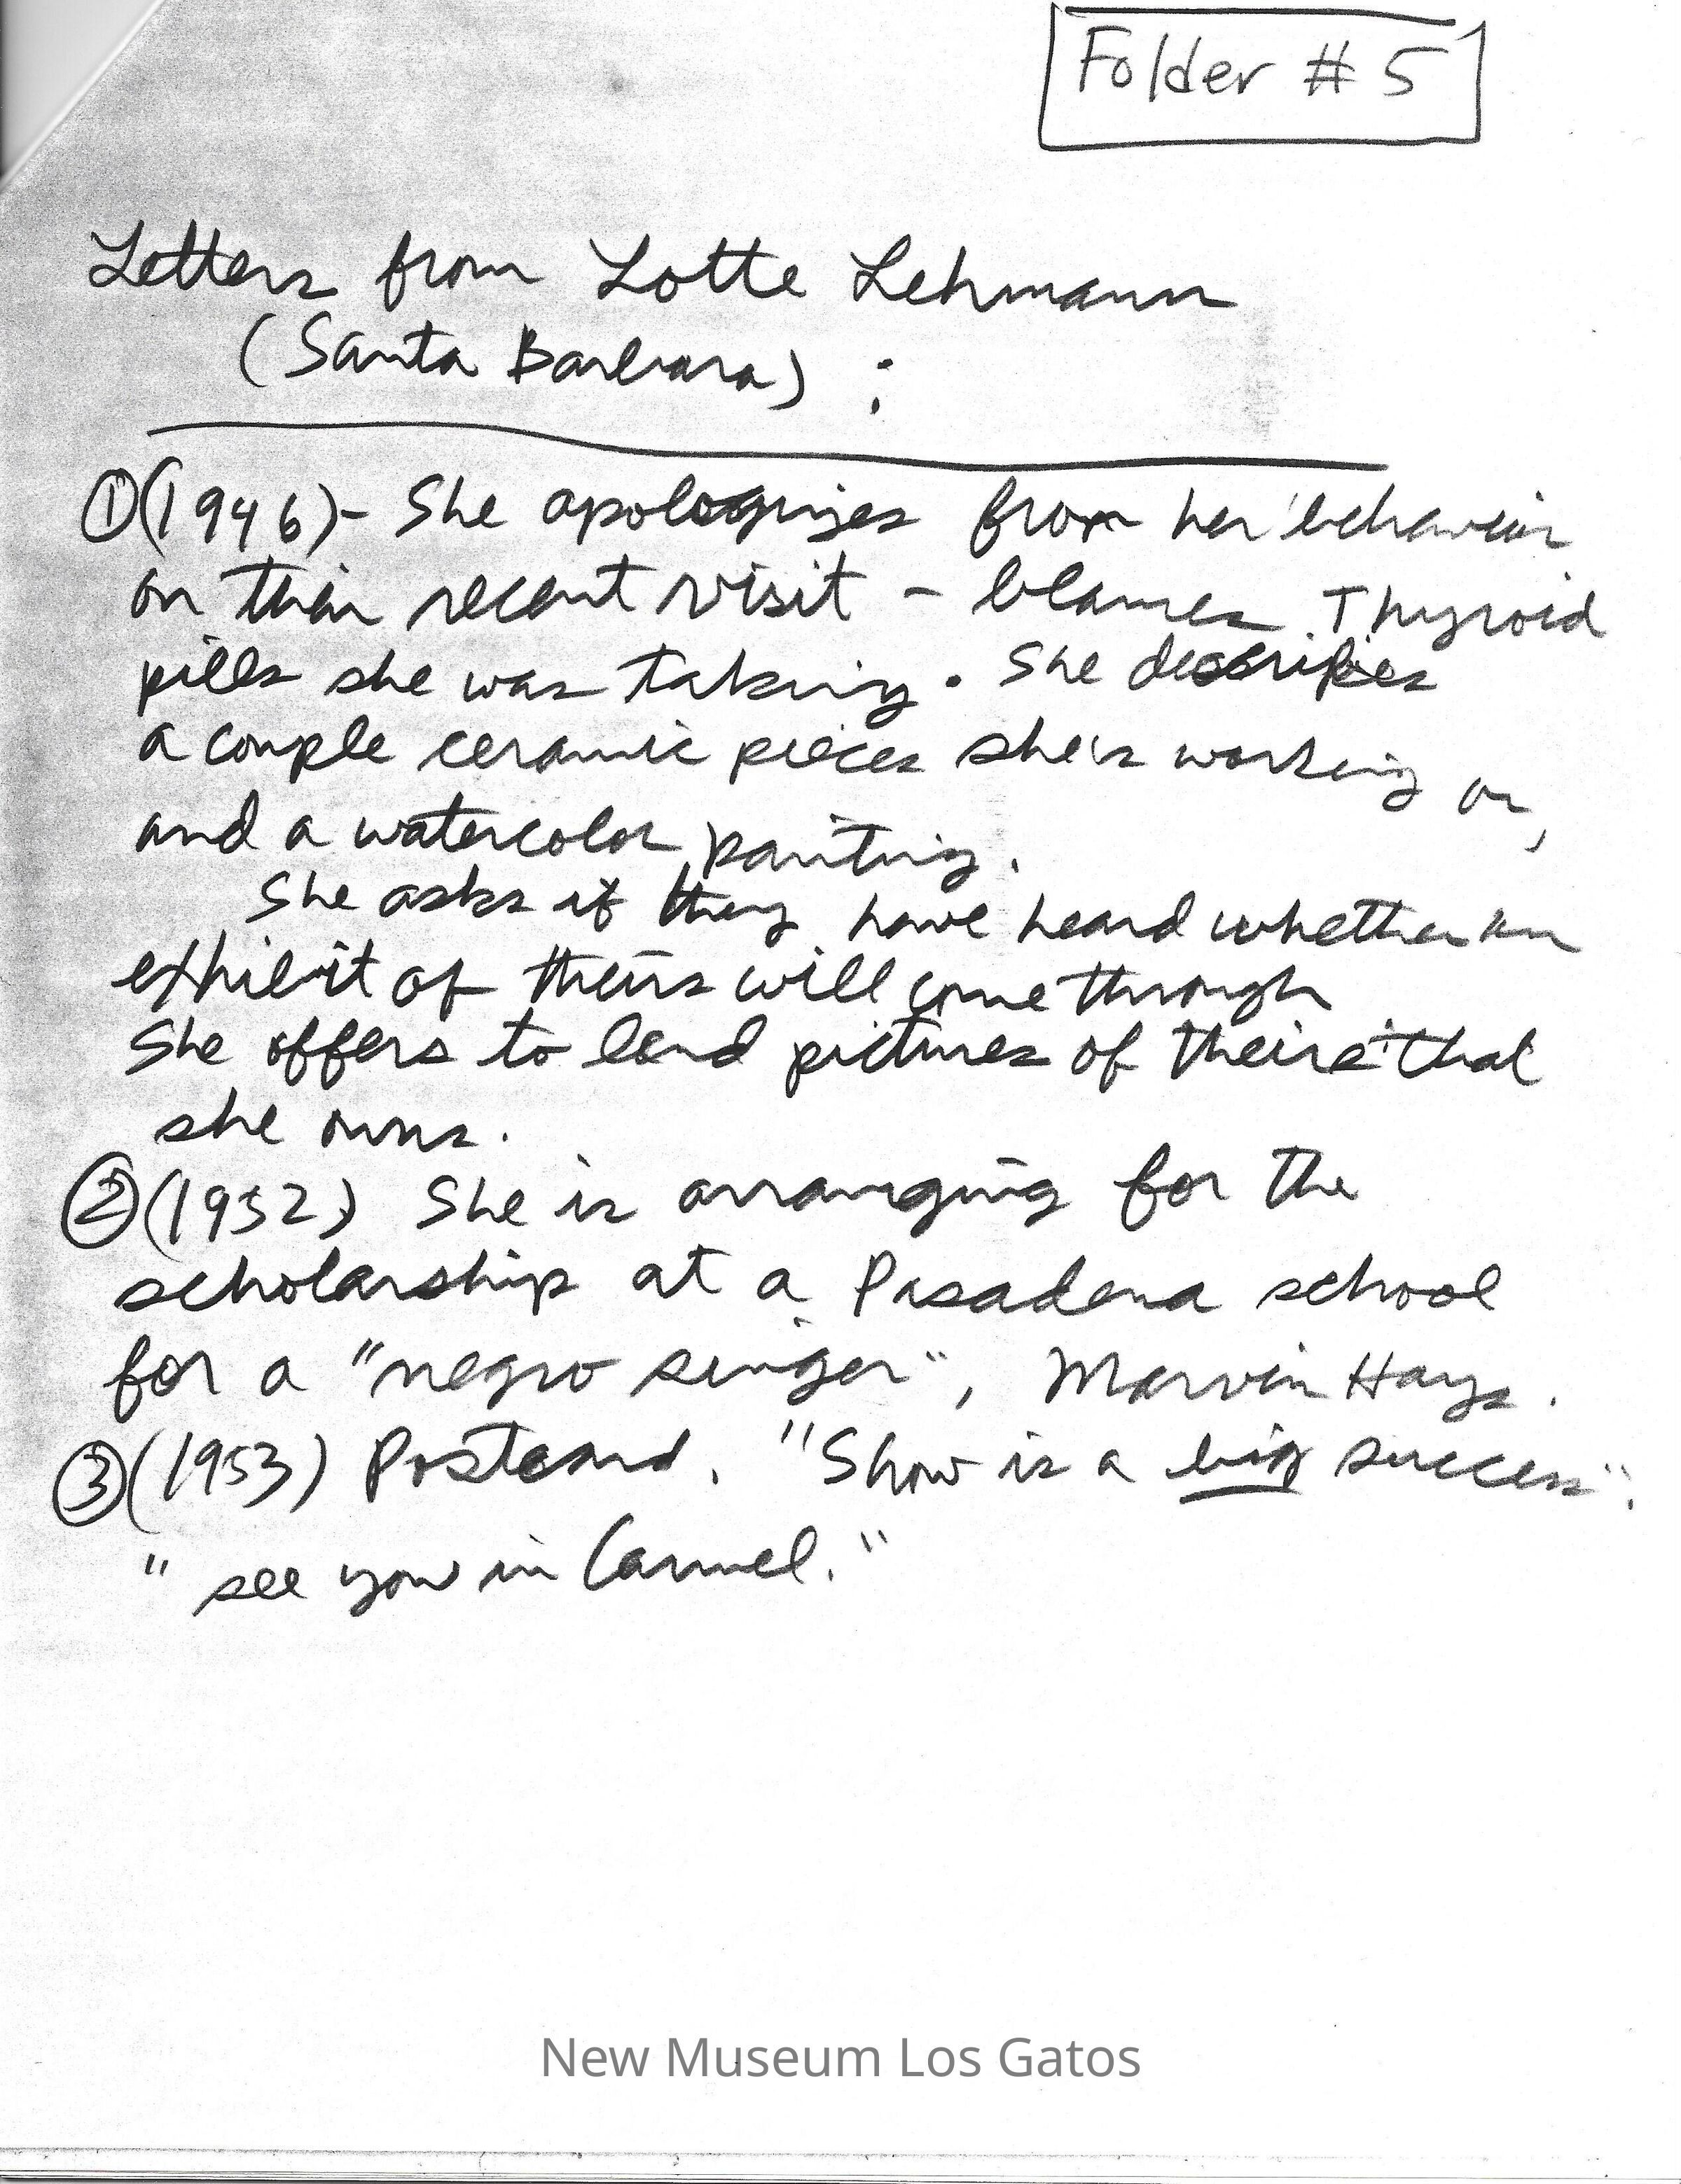 Folder # 5
Letters from Lotte Lehmann
(Santa Barbara) :
①(1946)- She apologizes from her behavior
on their recent visit - blames Thyroid
pills she was taking. She describes
a couple ceramic pieces she's working on,
and a watercolor painting.
She asks if they have heard whether an
exhibit of theirs will come through
She offers to lend pictures of theirs that
she owns.
②(1952) She is arranging for the
scholarship at a Pasadena school
for a "negro singer", Marvin Hays.
③(1953) Postcard. "Show is a big success".
"see you in Carmel."
New Museum Los Gatos